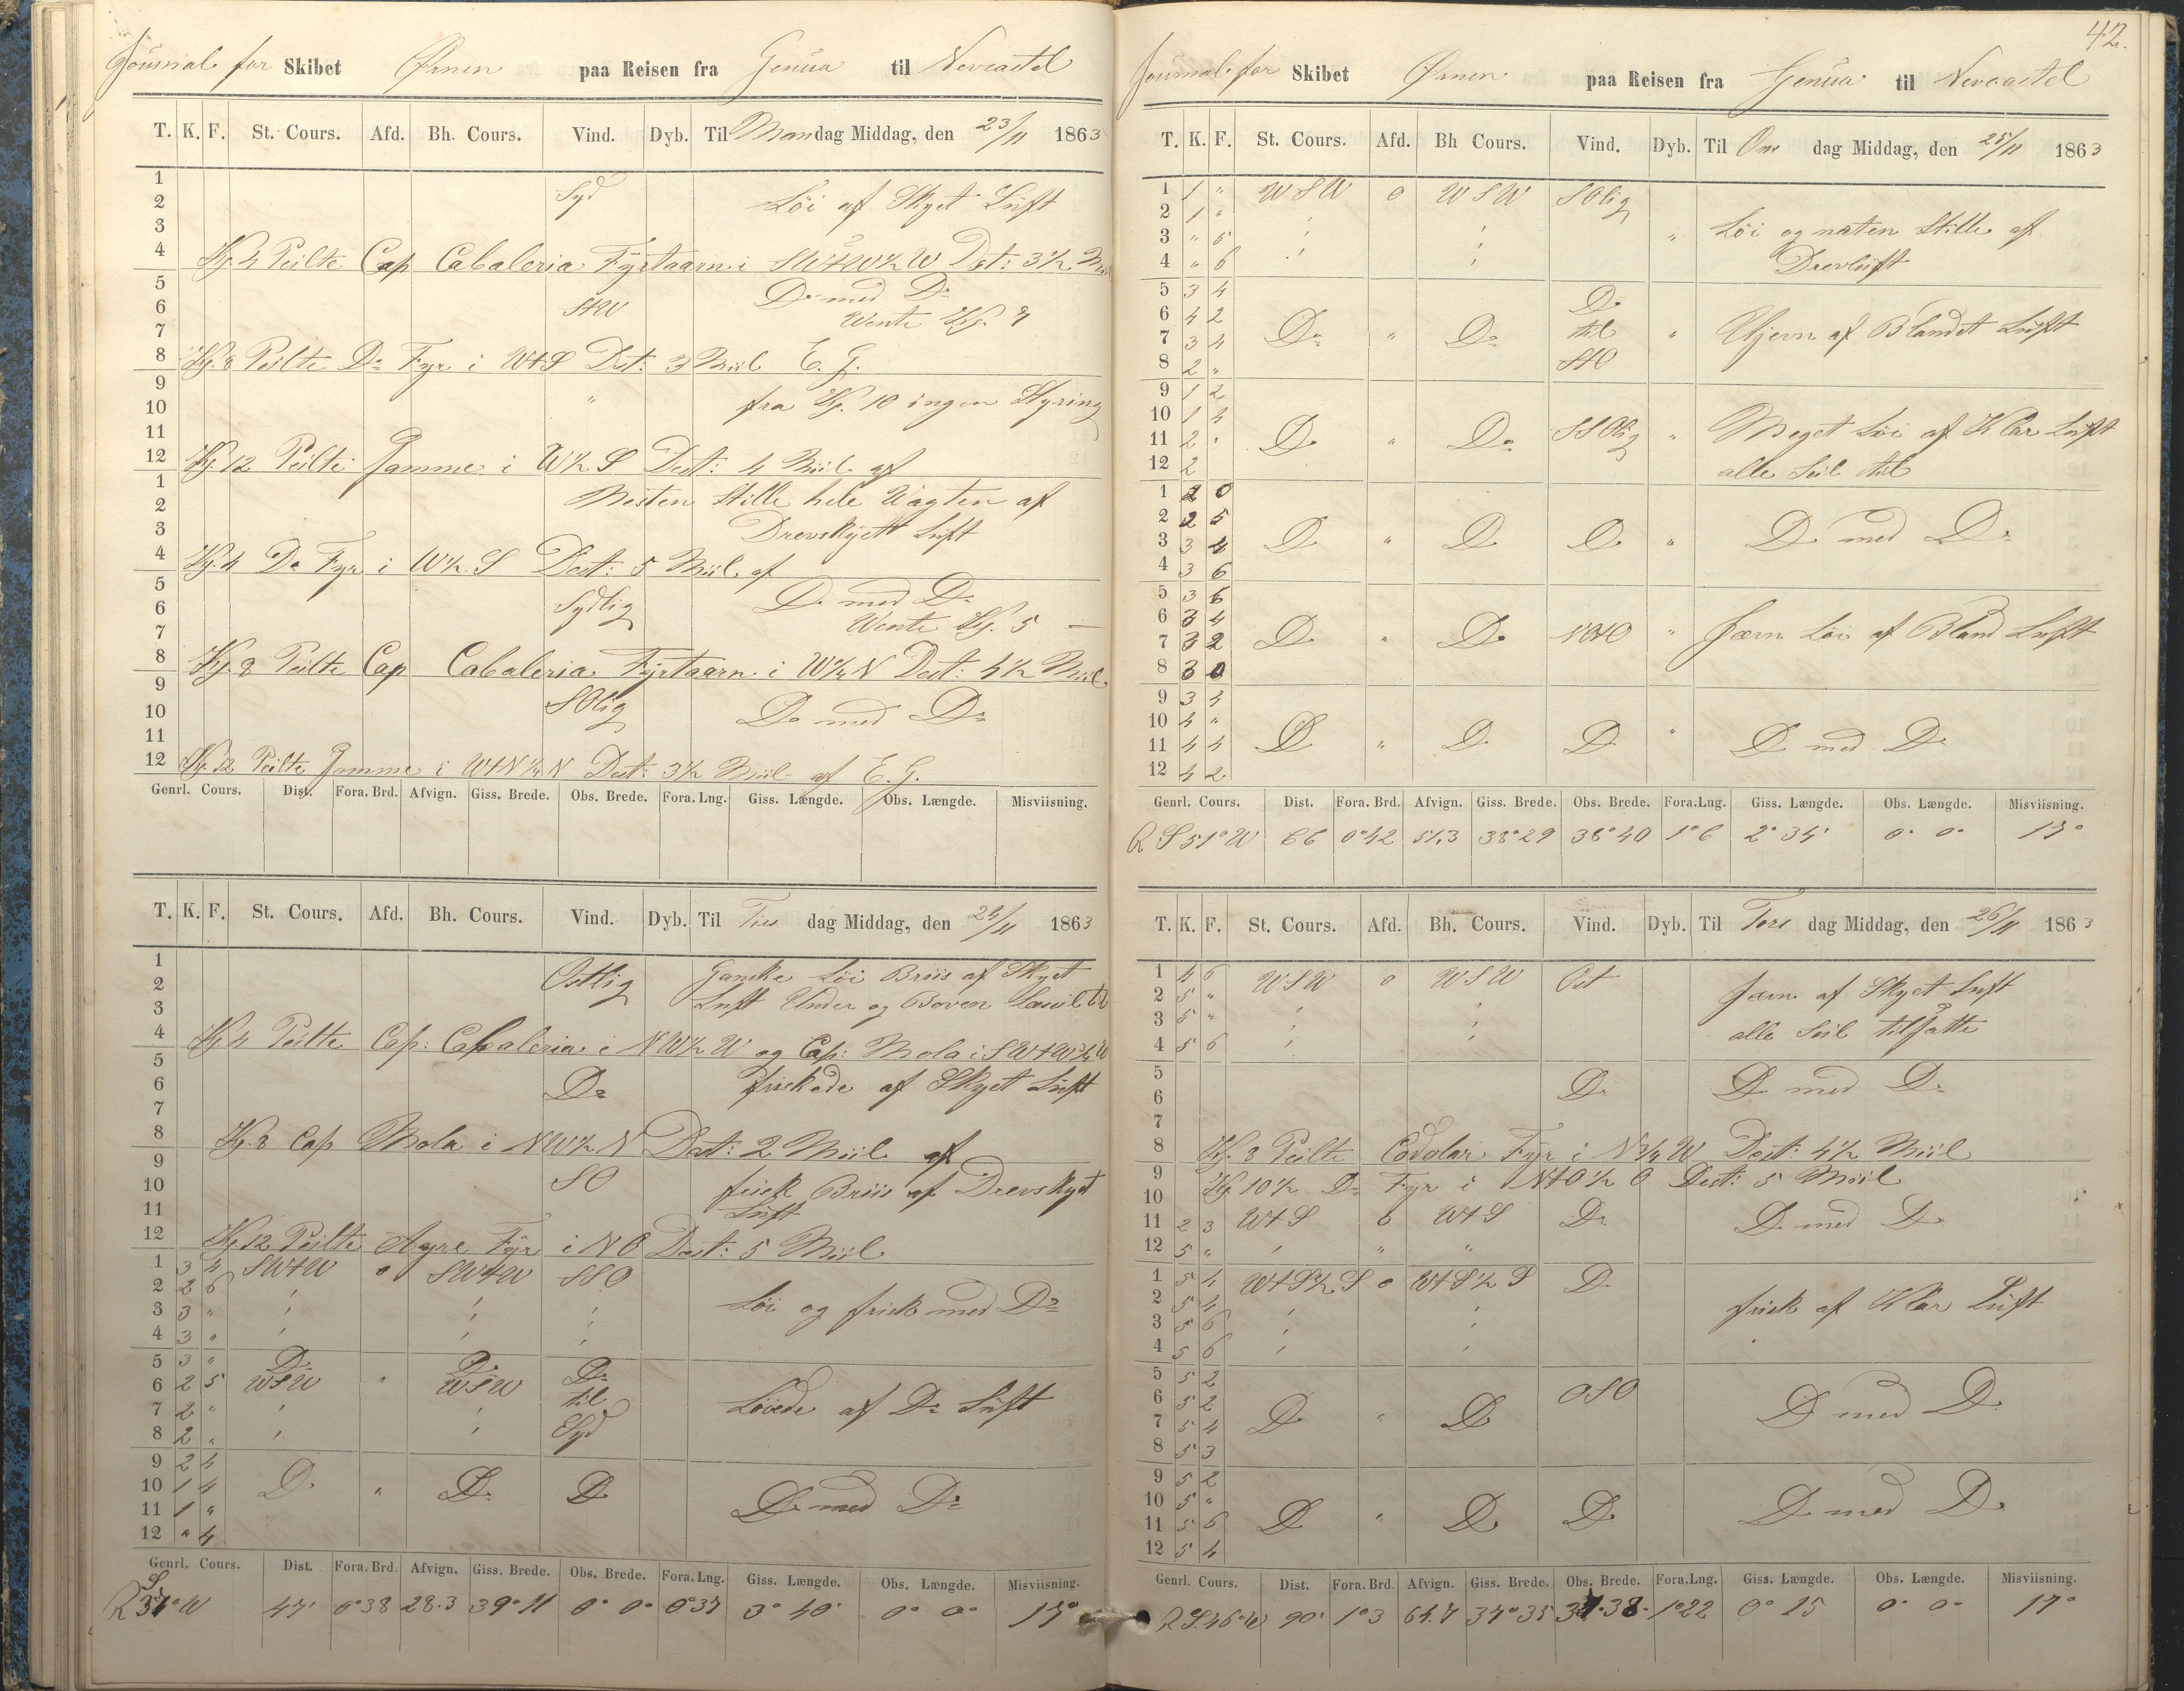 Journal for Skibet Ørnen paa Reisen fra Genua til Nevcastel
T. K. F. St. Cours. Afd. Bh. Cours. Vind. Dyb. Til Mandag Middag, den 23/11 1863
1
2 Syd Löi af Skyet Luft
3
4 Kl. 4 Peilte Cap Cabaleria Fyrtaarn i SWtW½W Dist: 3½ Miil
5 Do med Do
6 StW Wente Kl. 7
7
8 Kl. 8 Peilte Do Fyr i WtS Dist: 3 Miil E. G.
9
10 " fra Kl. 10 ingen Styring
11
12 Kl. 12 Peilte Samme i W½S Dist: 4 Miil af
1
2 Nesten Stille hele Wagten af
3 Drevskyett Luft
4 Kl. 4 Do Fyr i W½S Dist: 5 Miil af
5 Do med Do
6 Sydlig Wente Kl. 5 —
7
8 Kl. 8 Peilte Cap Cabaleria Fyrtaarn i W¼N Dist: 4½ Miil
9
10 SOlig Do med Do
11
12 Kl. 12 Peilte Samme i WtN¼N Dist: 3½ Miil af E. G.
Genrl. Cours. Dist. Fora. Brd. Afvign. Giss. Brede. Obs. Brede. Fora. Lng. Giss. Længde. Obs. Længde. Misviisning.
T. K. F. St. Cours. Afd. Bh. Cours. Vind. Dyb. Til Tirs dag Middag, den 24/11 1863
1 Ostlig Ganske Löi Briis af Skyet
2 Luft Under og Boven
3
4 Kl. 4 Peilte Cap: Cabaleria i NW½W og Cap: Mola i SWtW¾W
5
6 Do friskede af Skyet Luft
7
8 Kl. 8 Cap Mola i NW½N Dist: 2 Miil af
9
10 SO frisk Briis af Drevskyet
11 Luft
12 Kl. 12 Peilte Ayre Fyr i NO Dist: 5 Miil
1 3 4 SWtW 0 SWtW SSO
2 2 6 ' ' '
3 3 " ' ' ' Löi og frisk med Do
4 3 " ' ' '
5 3 " Do Do Do
6 2 5 WSW " WSW til
7 2 " ' ' Löiede af Do Luft
8 2 " ' ' Syd
9 2 4
10 1 4 Do " Do Do
11 1 " Do med Do
12 " 4
Genrl. Cours. Dist. Fora. Brd. Afvign. Giss. Brede. Obs. Brede. Fora. Lng. Giss. Længde. Obs. Længde. Misviisning.
R S 37° W 47' 0°38 28.3 39°11 0° 0° 0°37 3° 40' 0° 0° 17°
42.
Journal for Skibet Ørnen paa Reisen fra Genua til Nevcastel
T. K. F. St. Cours. Afd. Bh Cours. Vind. Dyb. Til Ons dag Middag, den 25/11 1863
1 1 " WSW 0 WSW SOlig
2 1 " ' '
3 " 5 ' ' " Löi og næsten Stille af
4 " 6 ' ' Drevluft
5 3 4 Do
6 4 2 til
7 3 4 Do " Do " Ujevn af Blandet Luft
8 2 " StO
9 1 2
10 1 4
11 2 " Do " Do SSOlig " Meget Löi af Klar Luft
12 2 alle Seil til
1 2 0
2 2 5
3 3 4 Do " Do Do " Do med Do
4 3 6
5 3 6
6 3 4
7 3 2 Do " Do " Jævn Löi af Bland Luft
8 3 0
9 3 4
10 4 "
11 4 4 Do " Do Do " Do med Do
12 4 2
Genrl. Cours. Dist. Fora. Brd. Afvign. Giss. Brede. Obs. Brede. Fora.Lng. Giss. Længde. Obs. Længde. Misviisning.
R S 51° W 66 0°42 51,3 38°29 38°40 1°6 2° 34' 0° 0° 17°
T. K. F. St. Cours. Afd. Bh. Cours. Vind. Dyb. Til Tors dag Middag, den 26/11 1863
1 4 6 WSW 0 WSW Ost
2 5 " ' ' Jævn af Skyet Luft
3 5 " ' ' alle Seil tilsatte
4 5 6 ' '
5
6 Do Do med Do
7
8 Kl. 8 Peilte Codolar Fyr i N¾W Dist: 4½ Miil
9 Kl. 10½ Do Fyr i NtO½O Dist: 5 Miil
10
11 2 3 WtS 0 WtS Do Do med Do
12 5 " ' " "
1 5 4 WtS½S 0 WtS½S Do
2 5 4 ' '
3 5 6 ' ' frisk af Klar Luft
4 5 6 ' '
5 5 2
6 5 2 OSO
7 5 4 Do " Do Do med Do
8 5 3
9 5 2
10 5 "
11 5 6 Do " Do Do Do med Do
12 5 4
Genrl. Cours. Dist. Fora. Brd. Afvign. Giss. Brede. Obs. Brede. Fora.Lng. Giss. Længde. Obs. Længde. Misviisning.
R S 46° W 90' 1°3 64.7 37°35 37°38' 1°22 0° 25 0° 0° 17°